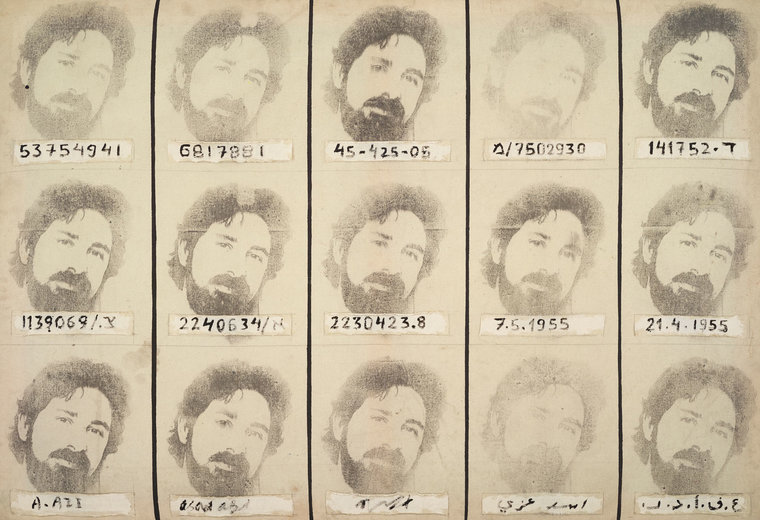 53754941
6817881
45-425-05
מ/7502930
141752-ד
1139069/.צ
2240634/א
2230423.8
7.5.1955
21.4.1955
A. AZI
asad azi
اسد عزي
ع.ف.أ.د.ب.